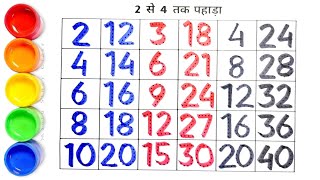 2 से 4 तक पहाड़ा
2 12 3 18 4 24
4 14 6 21 8 28
6 16 9 24 12 32
8 18 12 27 16 36
10 20 15 30 20 40